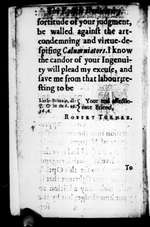 fortitude of your judgment,
be walled against the art-
condemning and virtue-de-
spising Calumniators. I know
the candor of your Ingenui-
ty will plead my excuse, and
save me from that labour; re-
sting to be
Little-Britain,
Your
Friend,
ROBERT TURNER.
To